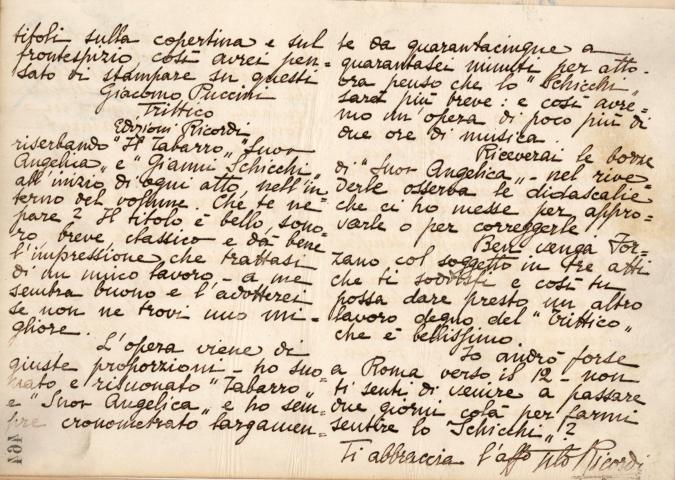 titoli sulla copertina e sul
frontespizio così avrei pen=
sato di stampare su questi
Giacomo Puccini
Trittico
Edizioni Ricordi
riserbando "Il Tabarro„ "Suor
Angelica„ e "Gianni Schicchi„
all'inizio di ogni atto, nell'in=
terno del volume. Che te ne
pare? Il titolo è bello, sono=
ro, breve classico e dà bene
l'impressione che trattasi
di un unico lavoro - a me
sembra buono e l'adotterei
se non ne trovi uno mi=
gliore.
L'opera viene di
giuste proporzioni - ho suo
nato e risuonato "Tabarro„
e "Suor Angelica„ e ho sem=
pre cronometrato largamen=
464
te da quarantacinque a
quarantasei minuti per atto.
ora penso che lo "Schicchi„
sarà più breve: e così avre=
mo un'opera di poco più di
due ore di musica.
Riceverai le bozze
di "Suor Angelica„ - nel rive
derle osserva le didascalie
che ci ho messe per appro=
varle o per correggerle.
Ben venga For=
zano col soggetto in tre atti
che ti soddisfi e così tu
possa dare presto un altro
lavoro degno del "Trittico„
che è bellissimo.
Io andrò forse
a Roma verso il 12 - non
ti senti di venire a passare
due giorni colà per farmi
sentire lo "Schicchi„?
Ti abbraccia l'affo Tito Ricordi